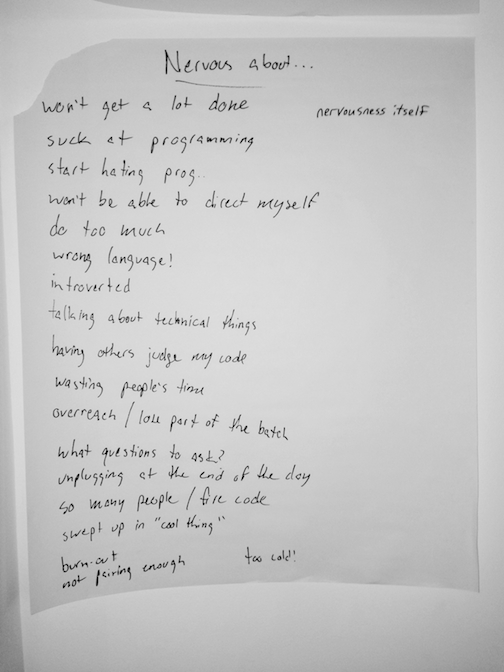 Nervous about...
won't get a lot done
nervousness itself
suck at programming
start hating prog..
won't be able to direct myself
do too much
wrong language!
introverted
talking about technical things
having others judge my code
wasting people's time
overreach / lose part of the batch
what questions to ask?
unplugging at the end of the day
so many people / fire code
swept up in "cool thing"
burn-out
not pairing enough
too cold!